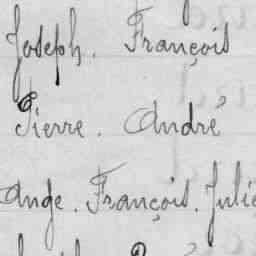 Joseph. François
Pierre. André
Ange. François. Julie